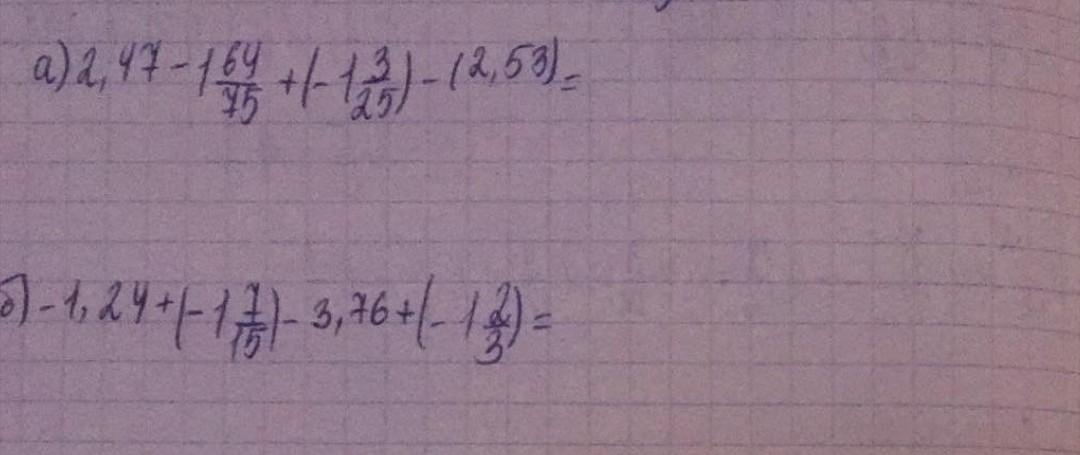 а) 2,47 - 1 64/75 + (-1 3/25) - (2,53) =
б) -1,24 + (-1 7/15) - 3,76 + (-1 2/3) =